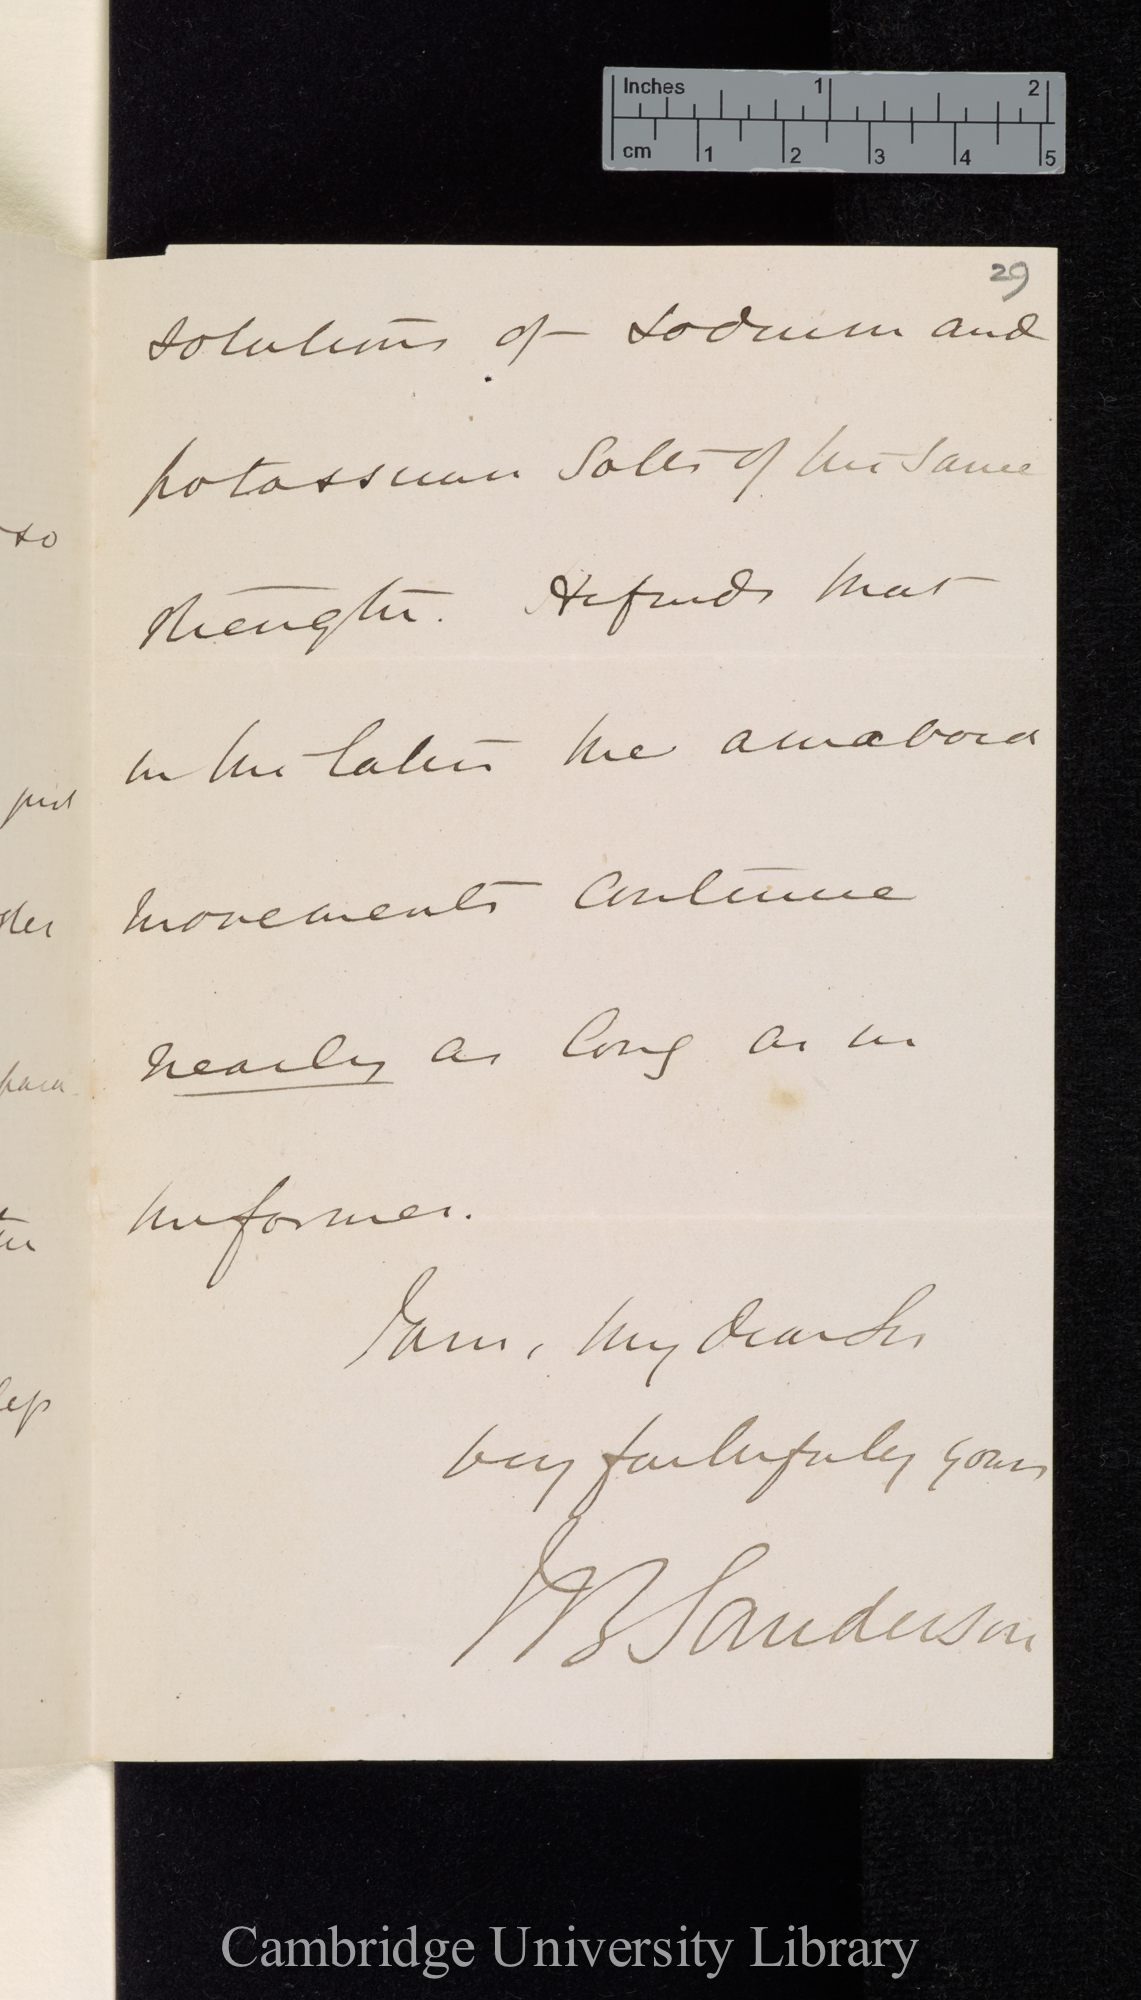 Inches 1 2
cm 1 2 3 4 5
29
solutions of sodium and
potassium salts of the same
strength. He finds that
in the latter the amæboid
movements continue
nearly as long as in
the former.
I am, my dear Sir
very faithfully yours
JB Sanderson
so
just
para
lep
Cambridge University Library